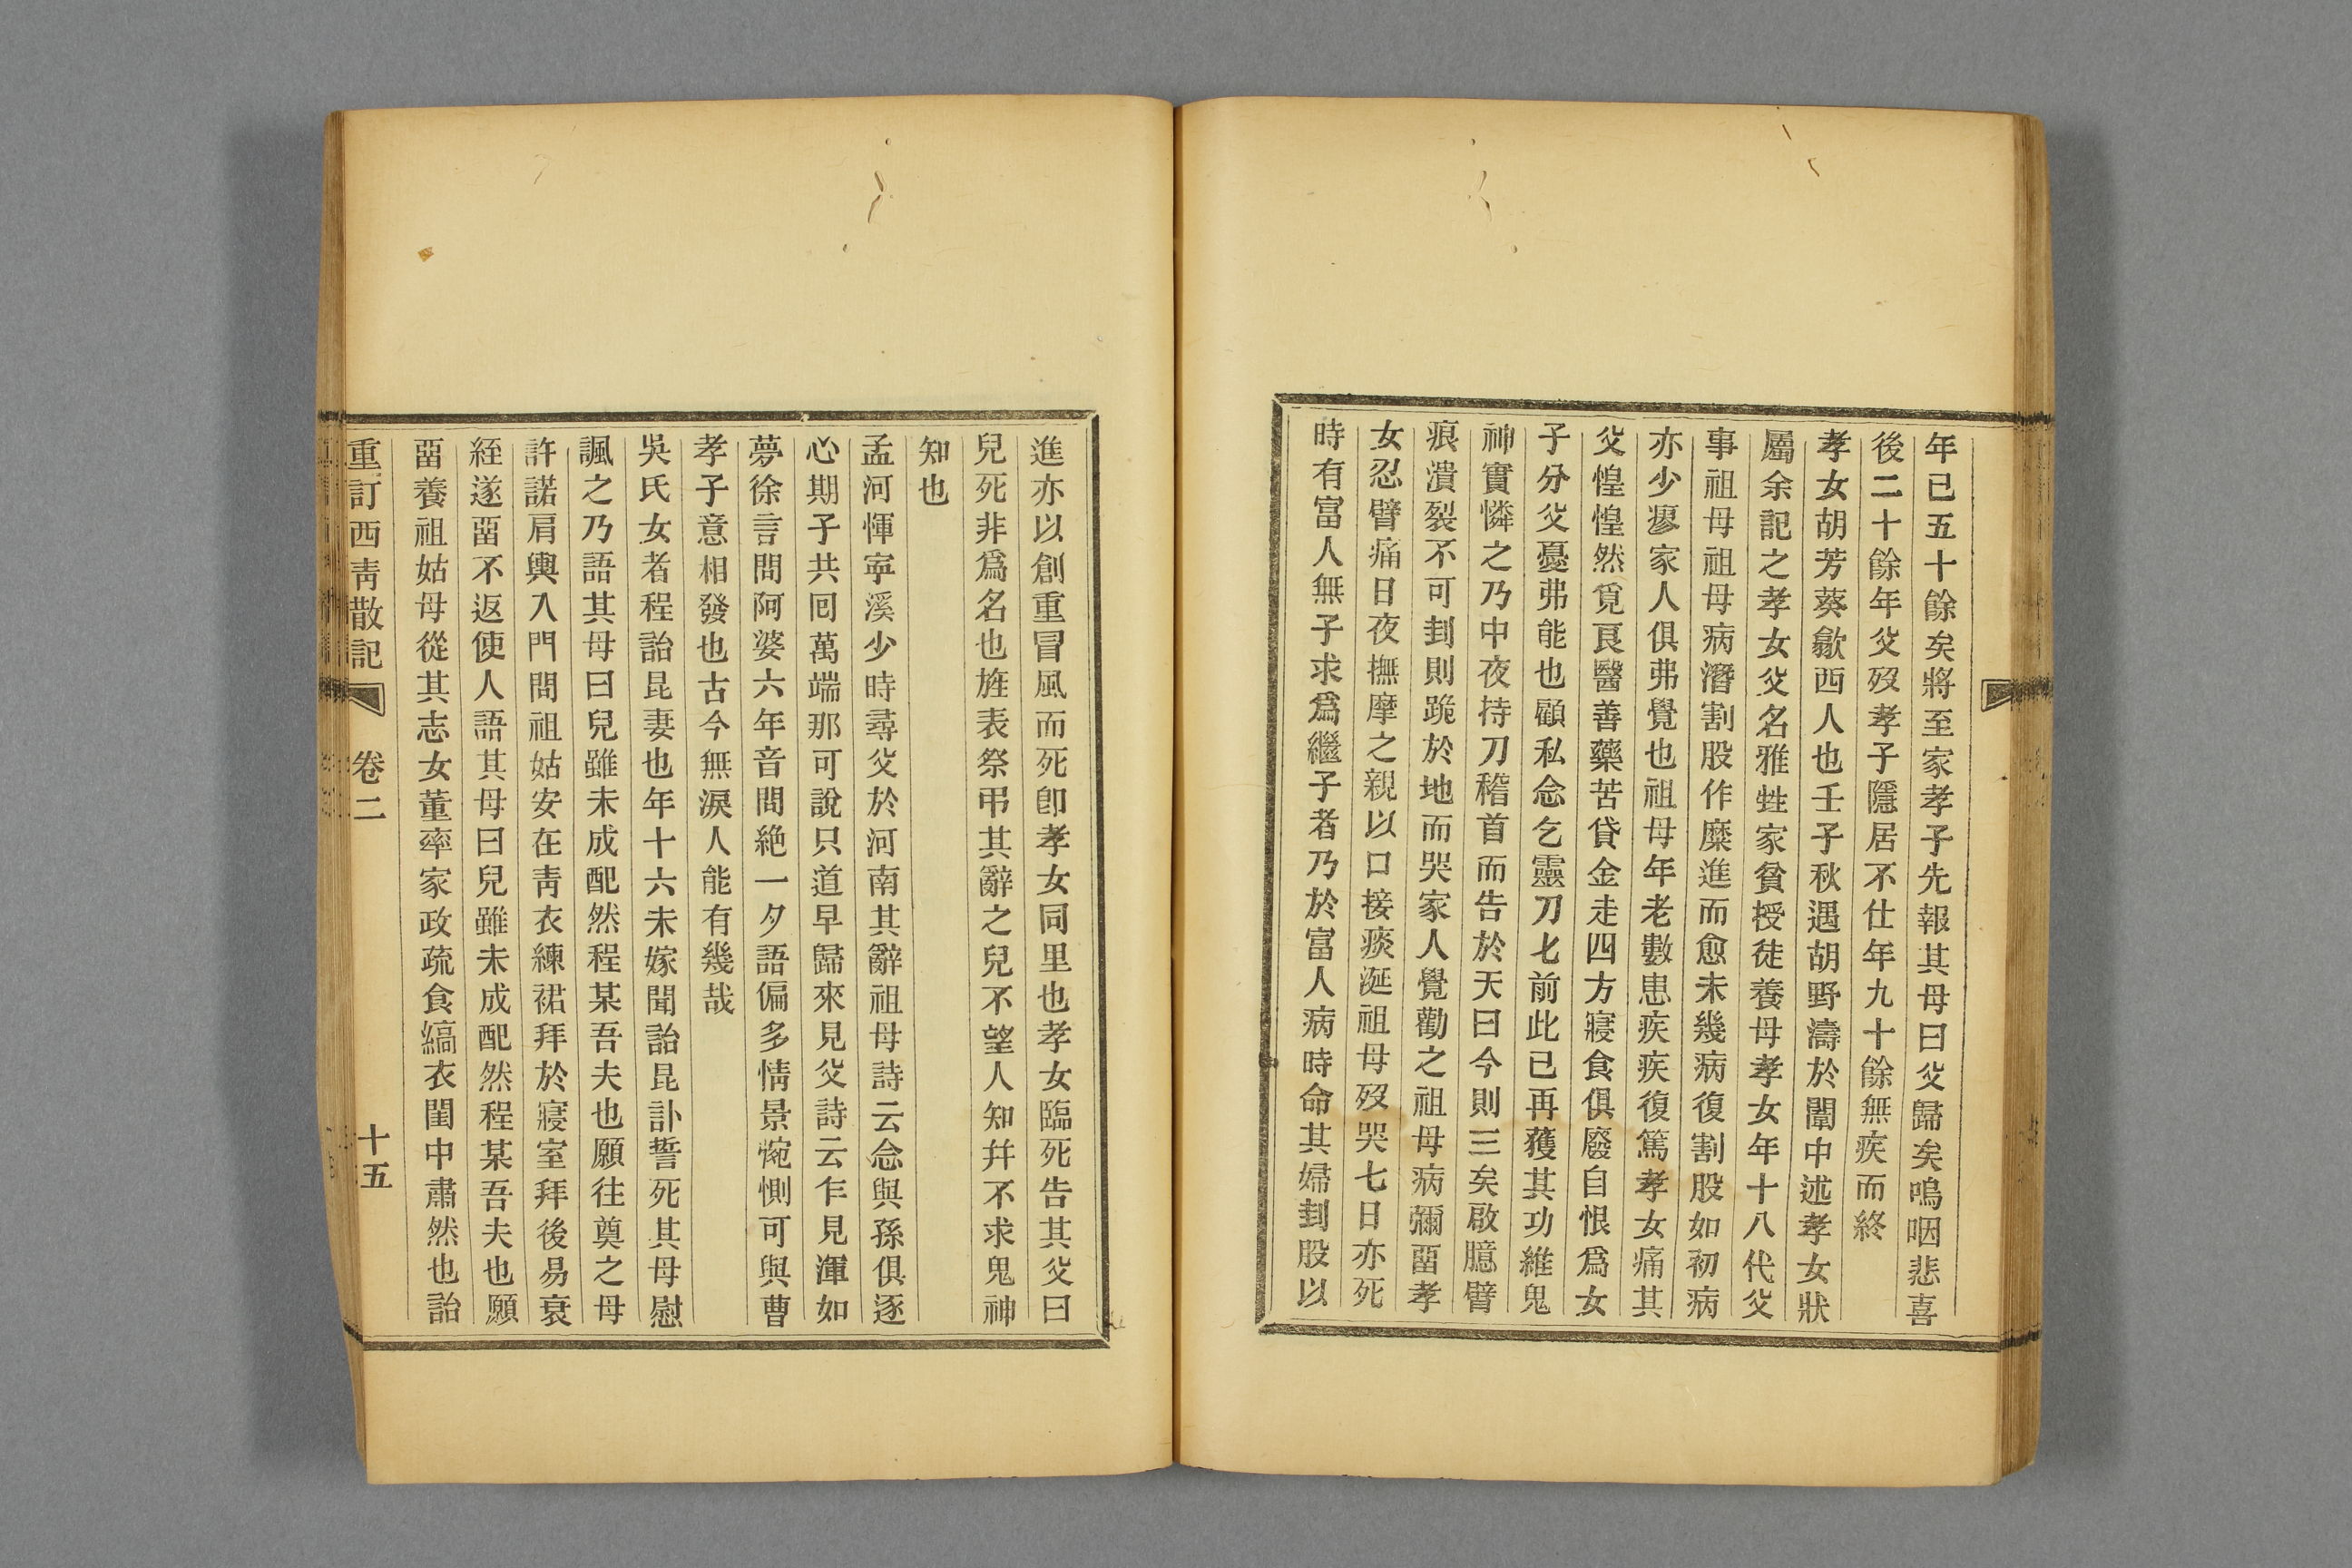 年已五十餘矣將至家孝子先報其母曰父歸矣嗚咽悲喜
後二十餘年父歿孝子隱居不仕年九十餘無疾而終
孝女胡芳葵歙西人也壬子秋遇胡野濤於闈中述孝女狀
屬余記之孝女父名雅甡家貧授徒養母孝女年十八代父
事祖母祖母病潛割股作糜進而愈未幾病復割股如初病
亦少瘳家人俱弗覺也祖母年老數患疾疾復篤孝女痛其
父惶惶然覓良醫善藥苦貸金走四方寢食俱廢自恨爲女
子分父憂弗能也顧私念乞靈刀匕前此已再獲其功維鬼
神實憐之乃中夜持刀稽首而告於天曰今則三矣啟臆臂
痕潰裂不可刲則跪於地而哭家人覺勸之祖母病彌畱孝
女忍臂痛日夜撫摩之親以口接痰涎祖母歿哭七日亦死
時有富人無子求爲繼子者乃於富人病時命其婦刲股以
進亦以創重冒風而死卽孝女同里也孝女臨死告其父曰
兒死非爲名也旌表祭弔其辭之兒不望人知幷不求鬼神
知也
孟河惲寧溪少時尋父於河南其辭祖母詩云念與孫俱逐
心期子共囘萬端那可說只道早歸來見父詩云乍見渾如
夢徐言問阿婆六年音問絶一夕語偏多情景惋惻可與曹
孝子意相發也古今無淚人能有幾哉
吳氏女者程詒昆妻也年十六未嫁聞詒昆訃誓死其母慰
諷之乃語其母曰兒雖未成配然程某吾夫也願往奠之母
許諾肩輿入門問祖姑安在靑衣練裙拜於寢室拜後易衰
絰遂畱不返使人語其母曰兒雖未成配然程某吾夫也願
畱養祖姑母從其志女董率家政疏食縞衣閨中肅然也詒
重訂西靑散記 卷二 十五